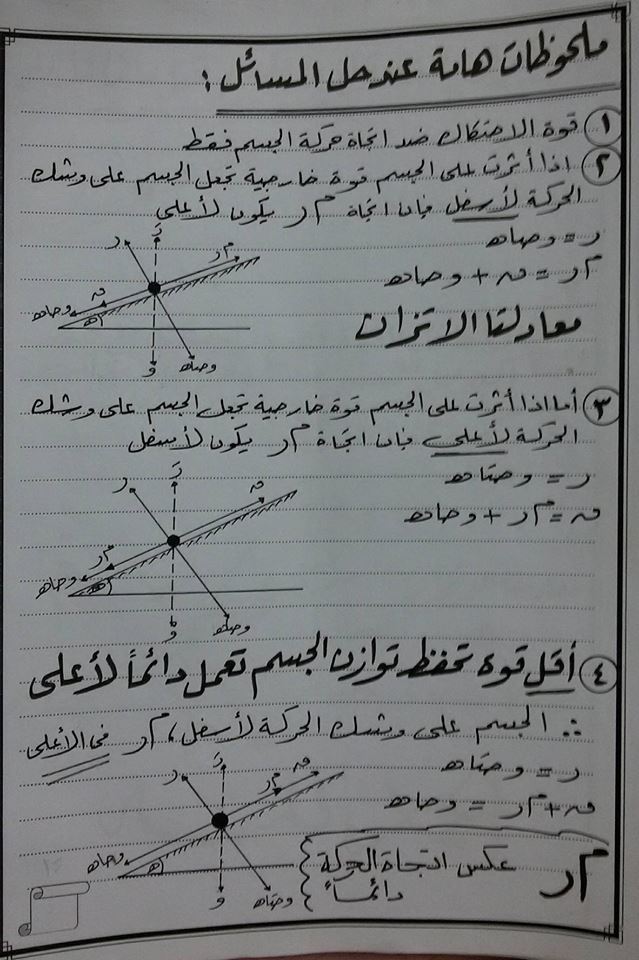 ملحوظات هامة عند حل المسائل :
١ قوة الاحتكاك ضد اتجاة حركة الجسم فقط
٢ اذا أثرت على الجسم قوة خارجية تجعل الجسم على وشك
الحركة لأسفل فإن اتجاة م ر يكون لأعلى
ر = و حتاه
م ر = ق + و حاه
معادلتا الاتزان
ر
رَ
م ر
ق
و حاه
ه
و
و حتاه
٣ أما اذا أثرت على الجسم قوة خارجية تجعل الجسم على وشك
الحركة لأعلى فإن اتجاة م ر يكون لأسفل
ر = و حتاه
ق = م ر + و حاه
ر
رَ
ق
م ر
و حاه
ه
و
و حتاه
٤ أقل قوة تحفظ توازن الجسم تعمل دائماً لأعلى
∴ الجسم على وشك الحركة لأسفل ، م ر فى الأعلى
ر = و حتاه
ق + م ر = و حاه
ر
رَ
م ر
ق
و حاه
ه
و
و حتاه
م ر عكس اتجاة الحركة
دائماً